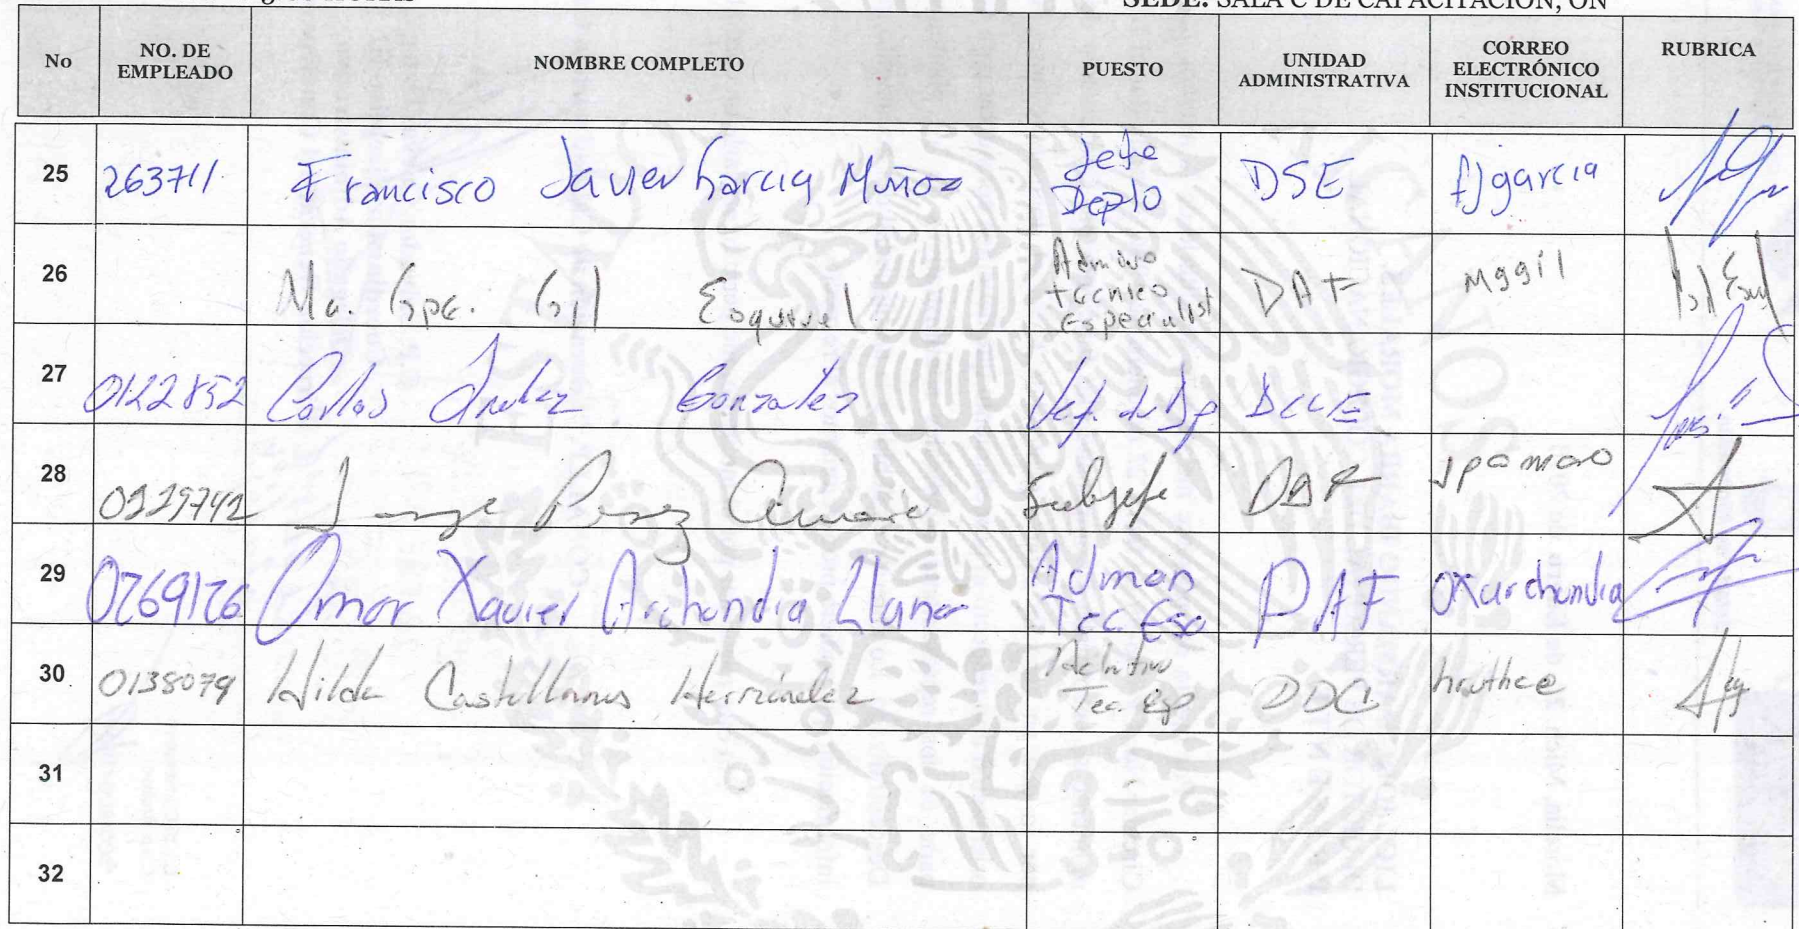 SEDE: SALA C DE CAPACITACIÓN, ON
No NO. DE EMPLEADO NOMBRE COMPLETO PUESTO UNIDAD ADMINISTRATIVA CORREO ELECTRÓNICO INSTITUCIONAL RUBRICA
25 263711 Francisco Javier Garcia Muñoz Jefe Depto DSE fjgarcia
26 Ma. Gpe. Gil Esquivel Admivo tecnico Especialist DAF Mggil
27 0122852 Carlos González Jef. de Dp DCCE
28 Jorge Perez Subjefe
29 0269126 Omar Xavier Archundia Llanos Admon Tec Esp DAF oxarchundia
30 0138079 Hilda Castellanos Hernández Tec. Esp DDC
31
32